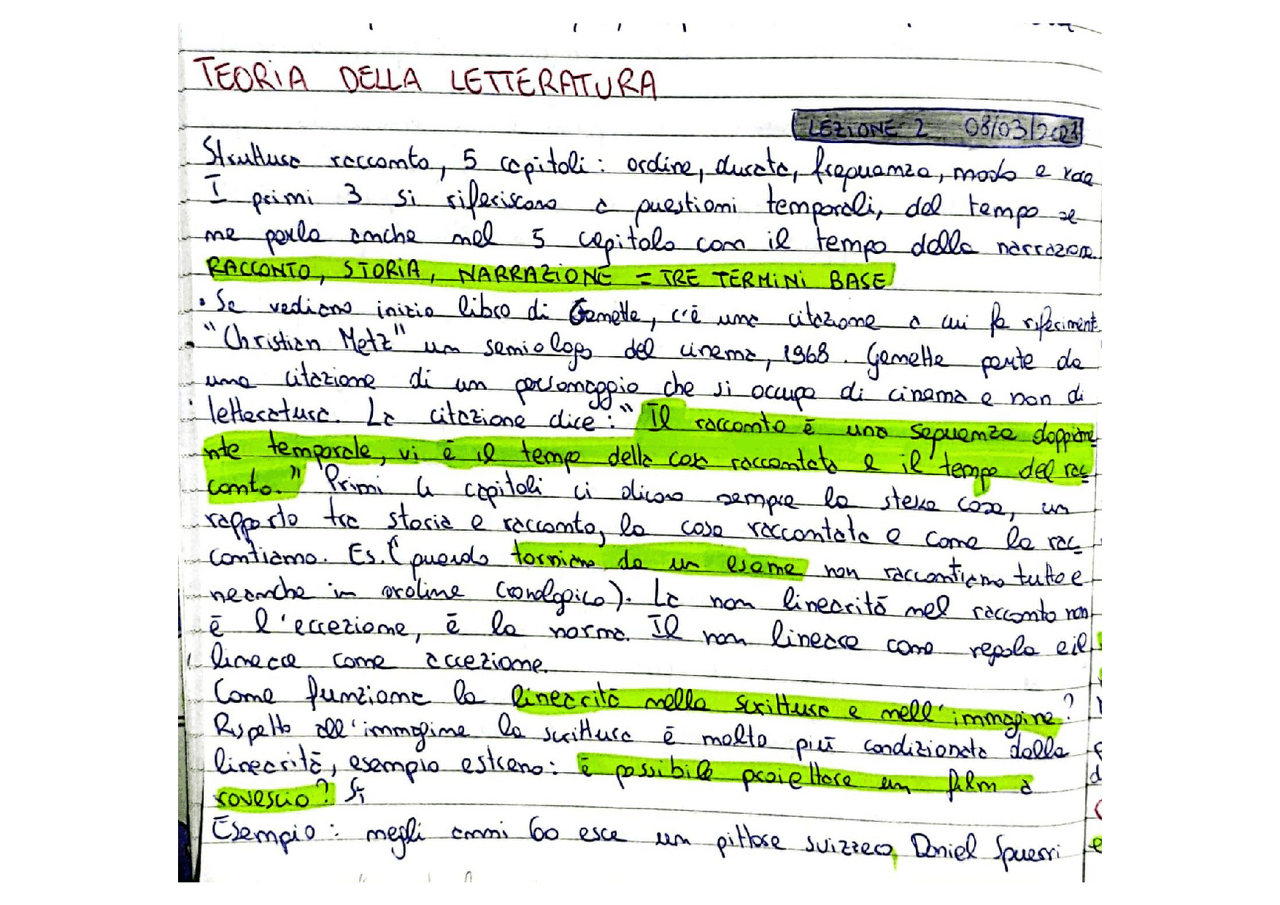 TEORIA DELLA LETTERATURA
LEZIONE 2 08/03/2023
Struttura racconto, 5 capitoli: ordine, durata, frequenza, modo e voce
I primi 3 si riferiscono a questioni temporali, del tempo se
ne parla anche nel 5 capitolo con il tempo della narrazione.
RACCONTO, STORIA, NARRAZIONE = TRE TERMINI BASE
• Se vediamo inizio libro di Genette, c'è una citazione a cui fa riferiment.
"Christian Metz" un semiologo del cinema, 1968. Genette parte da
una citazione di un personaggio che si occupa di cinema e non di
letteratura. La citazione dice: "Il racconto è una sequenza doppiame
nte temporale, vi è il tempo della cosa raccontata e il tempo del rac
conto." Primi 4 capitoli ci dicono sempre la stessa cosa, un
rapporto tra storia e racconto, la cosa raccontata e come la rac
contiamo. Es. (quando torniamo da un esame non raccontiamo tutto e
neanche in ordine cronologico). La non linearità nel racconto non
è l'eccezione, è la norma. Il non lineare come regola e il
lineare come eccezione.
Come funziona la linearità nella scrittura e nell'immagine?
Rispetto all'immagine la scrittura è molto più condizionata dalla
linearità, esempio estremo: è possibile proiettare un film a
rovescio? Sì
Esempio: negli anni 60 esce un pittore svizzero, Daniel Spuerri